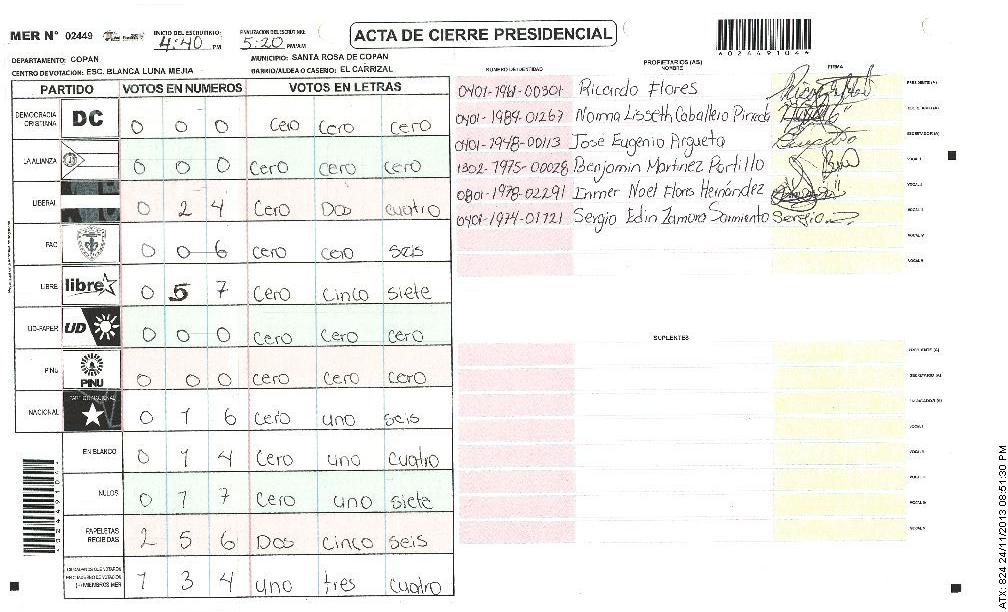 MER N° 02449
INICIO DEL ESCRUTINIO: 4:40 PM
FINALIZACION DEL ESCRUTINIO: 5:20 PM/AM
ACTA DE CIERRE PRESIDENCIAL
DEPARTAMENTO: COPAN
MUNICIPIO: SANTA ROSA DE COPAN
CENTRO DE VOTACION: ESC. BLANCA LUNA MEJIA
BARRIO/ALDEA O CASERIO: EL CARRIZAL
PARTIDO VOTOS EN NUMEROS VOTOS EN LETRAS
DEMOCRACIA CRISTIANA DC 0 0 0 Cero Cero cero
LA ALIANZA 0 0 0 Cero Cero Cero
LIBERAL 0 2 4 Cero Dos cuatro
PAC 0 0 6 Cero Cero seis
LIBRE libre 0 5 7 Cero Cinco siete
UD-FAPER UD 0 0 0 Cero Cero Cero
PINU PINU 0 0 0 Cero Cero Cero
NACIONAL 0 1 6 Cero uno seis
EN BLANCO 0 1 4 Cero uno cuatro
NULOS 0 1 7 Cero uno siete
PAPELETAS RECIBIDAS 2 5 6 Dos Cinco seis
1 3 4 uno tres cuatro
NUMERO DE IDENTIDAD
PROPIETARIOS (AS)
NOMBRE
FIRMA
0401-1961-00301 Ricardo Flores
0401-1989-01267 Norma Lisseth Caballero Pineda
0401-1948-00113 José Eugenio Argueta
1302-1975-00028 Benjamin Martinez Portillo
0801-1978-02291 Inmer Noel Flores Hernández
0401-1974-01721 Sergio Edin Zamora Sarmiento Sergio
PRESIDENTE (A)
VOCAL I
SUPLENTES
ATX: 824 24/11/2013 08:51:30 PM